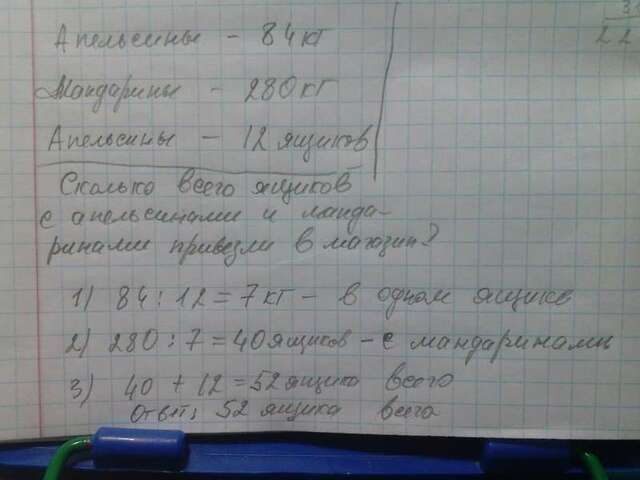 Апельсины - 84 кг
Мандарины - 280 кг
Апельсины - 12 ящиков
Сколько всего ящиков
с апельсинами и манда-
ринами привезли в магазин?
1) 84 : 12 = 7 кг - в одном ящике
2) 280 : 7 = 40 ящиков - с мандаринами
3) 40 + 12 = 52 ящика всего
Ответ: 52 ящика всего